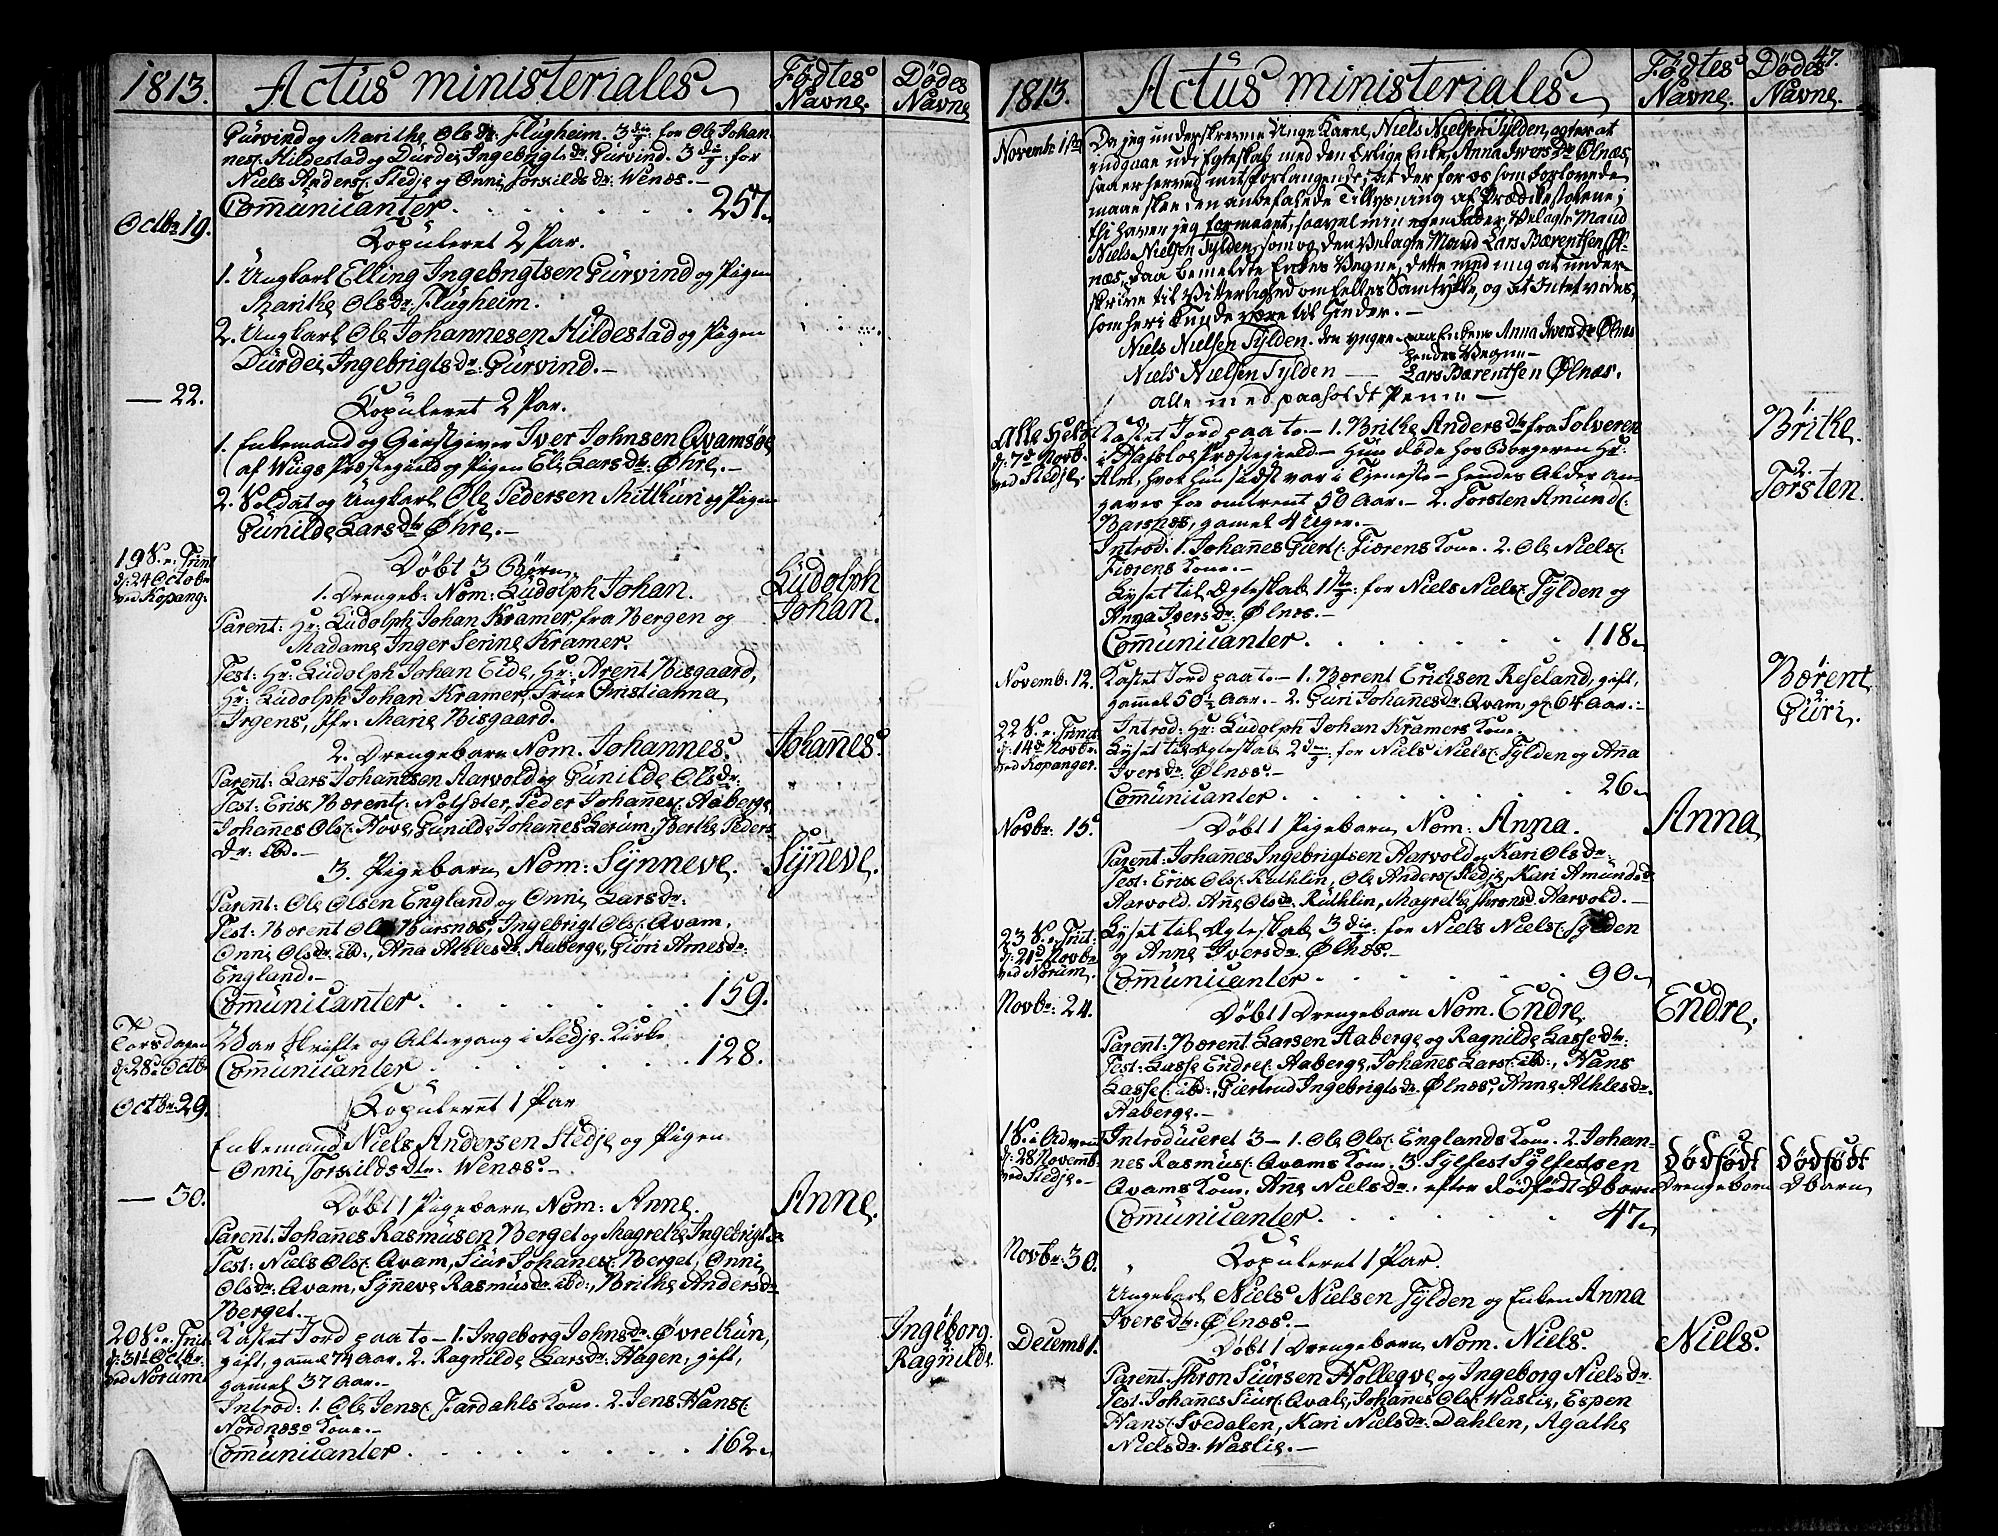 1813.
Actus ministeriales
Fødtes
Navne.
Døde
Navne
Gurvind og Marithe Ols Dr: Flugheim. 3die for Ole Johan-
nes: Kildestad og Durdei Ingebrigts Dr. Gurvind. 3die: for
Niels Anders: Stedje og Onni Torkilds Dr: Wenæs.-
Communicanter. 257.
Octbr 19.
Kopuleret 2 Par.
1. Ungkarl Elling Ingebrigtsen Gurvind og Pigen
Marithe Ols Dr. Flugheim.
2. Ungkarl Ole Johannesen Kildestad og Pigen
Durdei Ingebrigts Dr: Gurvind.-
— 22.
Kopuleret 2 Par.
1. Enkemand og Giestgiver Iver Johnsen Qvamsøe
af Wiigs Præstegield og Pigen Eli Lars Dr: Øhre.-
2. Soldat og Ungkarl Ole Pedersen Mithun og Pigen
Gunilde Lars Dr Øhre.-
19 S. e. Trinit
d: 24 Octobr
ved Kopang:
Døbt 3 Børn.
1. Drengeb: Nom: Ludolph Johan.
Ludolph
Johan.
Parent: Hr: Ludolph Johan Kramer fra Bergen og
Madame Inger Serine Kramer.
Test: Hr: Ludolph Johan Eide, Hr: Arent Bisgaard,
Hr: Ludolph Johan Kramer, Frue Christianna
Irgens, Jfr: Marie Bisgaard.
2. Drengebarn Nom. Johannes.
Johannes.
Parent: Lars Johannsen Aarvold og Gunilde Ols Dr.
Test: Erik Bærents: Nolsæter, Peder Johannes: Aaberge,
Johannes Ols: Hove, Gunilde Johannes Lerum, Berthe Peders
Dr: ibd.-
3. Pigebarn Nom: Synneve.
Synneve.
Parent: Ole Olsen England og Onni Lars Dr:
Test: Bærent Ols: Barsnæs, Ingebrigt Ols: Qvam,
Onni Ols Dr. ibd:, Anna Athles Dr. Aaberge, Giøri Arnes Dr:
England.-
Communicanter. 159.
Torsdagen
d: 28de Octbr
Var Skrifte og Altergang i Stedje Kirke
Communicanter 128.
Octbr: 29.
Kopuleret 1 Par
Enkemand Niels Andersen Stedje og Pigen
Onni Torkilds Dtr. Wenæs.-
— 30.
Døbt 1 Pigebarn Nom: Anne.
Anne.
Parent. Johanes Rasmusen Berget og Magrethe Ingebrigts Dr
Test: Niels Ols: Qvam, Siur Johanes: Berget, Onni
Ols Dr: Qvam, Synneve Rasmus Dr. ibd:, Brithe Anders Dr
Berget.-
20 S. e. Trinit
d: 31te Octbr.
ved Norum.
Kastet Jord paa to - 1. Ingeborg Johns Dr. Øvrethun,
gift, gammel 74 Aar. 2. Ragnilde Lars Dr. Hagen, gift,
gamel 37 Aar.-
Ingeborg.
2.
Ragnilde.
Introd: 1. Ole Jens: Fardahls Kone. 2. Jens Hans:
Nordnæs Kone.-
Communicanter. 162.
1813.
Actus ministeriales.
Fødtes
Navne.
Dødes
Navne.
47.
Novembr 1ste
Da jeg underskrevne Unge Karel, Niels Nielsen Tylden, agter at
indgaae udi Egteskab med den ærlige Enke, Anna Ivers Dr Ølnæs,
saa er herved mit forlangende, at der for os som forlovede
maae skee den anbefalede Tillysning af Prædikestolene;
thi haver jeg formaaet, saavel min egen Fader, Velagte Mand
Niels Nielsen Tylden, som og den Velagte Mand Lars Bærentsen Øl-
næs, paa bemeldte Enkes Vegne, dette med mig at under-
skrive til Vitterlighed om felles Samtykke, og at Intet vides,
som heri kunde være til Hinder.-
Niels Nielsen Tylden. den yngre - paa Enkens Anna Ivers Dr Ølnæs
hendes Vegne-
Niels Nielsen Tylden — Lars Bærentsen Ølnæs.
alle med paaholdt Pen.-
Alle Helg:
d: 7de Novb.
ved Stedje.
Kastet Jord paa to - 1. Brithe Anders Dr fra Solveren
i Hafsloe Præstegield - Hun døde hos Borgeren Hr:
Alm, hvor hun sidst var i Tjeneste - hendes Alder an-
gaves for omtrent 50 Aar.- 2. Torsten Amund:
Barsnæs, gamel 4 Uger.-
1.
Brithe.
2.
Torsten.
Introd. 1. Johannes Giert: Fiærens Kone. 2. Ole Niels:
Fiærens Kone.-
Lyset til Ægteskab 1ste: for Niels Niels: Tylden og
Anna Ivers Dr: Ølnæs.-
Communicanter. 118.
Novemb: 12.
Kastet Jord paa to.- 1. Bærent Ericksen Reseland, gift,
gammel 50½ Aar.- 2. Guri Johanes Dr. Qvam, gl: 64 Aar.-
Bærent
2.
Guri.
22 S. e. Trinit.
d: 14de Novbr.
ved Kopanger.
Introd: Hr: Ludolph Johan Kramers Kone.
Lyset til Ægteskab 2den: for Niels Niels: Tylden og Ana
Ivers Dr: Ølnæs.-
Communicanter. 26.
Novbr: 15.
Døbt 1 Pigebarn Nom: Anna.
Anna
Parent: Johannes Ingebrigtsen Aarvold og Kari Ols Dr:
Test: Erik Ols: Ruthlin, Ole Anders: Stedje, Kari Amunds Dr
Aarvold. Ane Ols Dr. Ruthlin, Magrethe Throns Dr Aarvold.-
23 S. e. Trinit:
d: 21de Novbr
ved Norum.
Lyset til Ægteskab 3die: for Niels Niels: Tylden
og Anne Ivers Dr. Ølnæs.-
Communicanter. 90.
Novbr: 24.
Døbt 1 Drengebarn Nom. Endre
Endre.
Parent: Bærent Larsen Aaberge og Ragnilde Lasse Dtr:
Test: Lasse Endre: Aaberge, Johannes Lars: ibd:, Hans
Lasse: ibd:, Giertrud Ingebrigts Dr. Ølnæs, Anne Athles Dr.
Aaberge.-
1 S. i Advent
d: 28 Novemb:
ved Stedje.-
Introduceret 3 - 1. Ole Ols: Englands Kone. 2. Johan-
nes Rasmus: Qvams Kone. 3. Sylfest Sylfestsen
Qvams Kone, Ane Niels Dr., efter dødfødt D barn
dødfødt
Drengebarn
dødfødt
D barn
Communicanter. 47.
Novbr: 30.
Kopuleret 1 Par.
Ungekarl Niels Nielsen Tylden og Enken Anna
Ivers Dr: Ølnæs.-
Decemb 1.
Døbt 1 Drengebarn Nom. Niels.
Niels.
Parent. Thron Siursen Hollegve og Ingeborg Niels Dr.
Test. Johannes Siur: Qvale, Johannes Ols: Waslie, Espen
Hans: Svedalen, Kari Niels Dr: Dahlen, Agathe
Niels Dr. Waslie.-